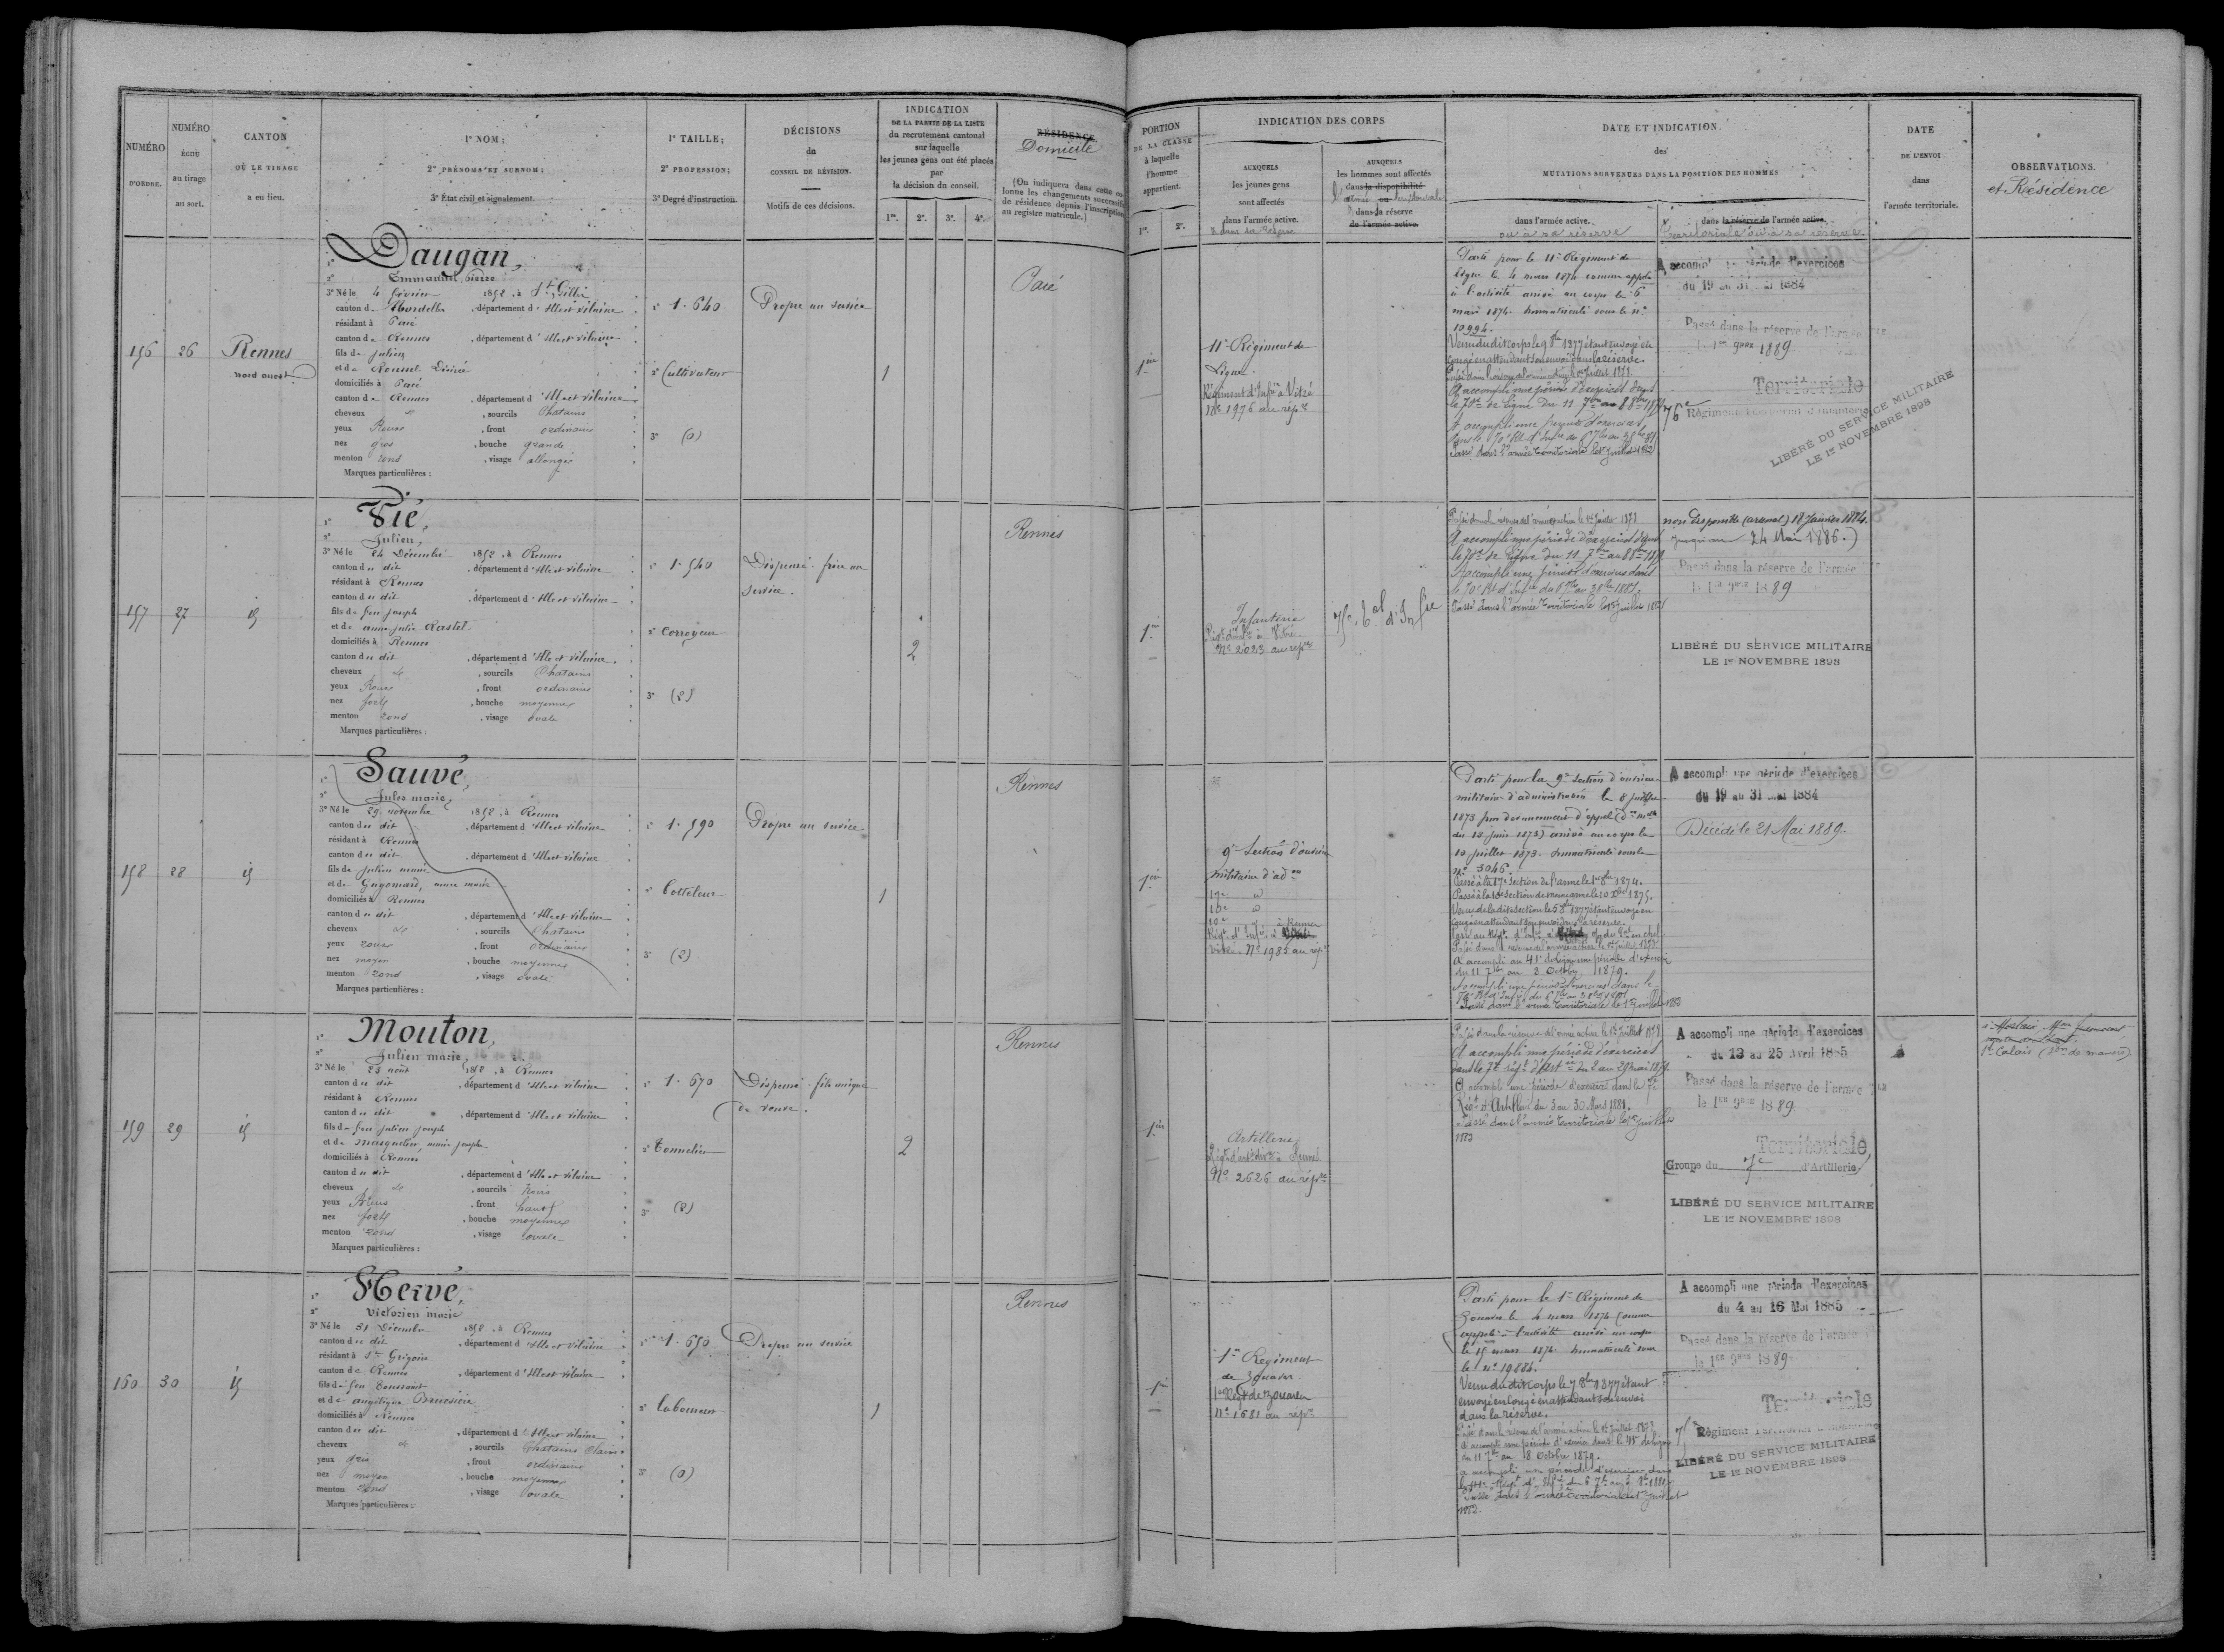 NUMÉRO
D'ORDRE.
NUMÉRO
échu
au tirage
au sort.
CANTON
OÙ LE TIRAGE
a eu lieu.
1° NOM;
2° PRÉNOMS ET SURNOM;
3° État civil et signalement.
1° TAILLE;
2° PROFESSION;
3° Degré d'instruction.
DÉCISIONS
du
CONSEIL DE RÉVISION.
Motifs de ces décisions.
INDICATION
DE LA PARTIE DE LA LISTE
du recrutement cantonal
sur laquelle
les jeunes gens ont été placés
par
la décision du conseil.
1re. 2e. 3e. 4e.
RÉSIDENCE.
Domicile
(On indiquera dans cette co-
lonne les changements successifs
de résidence depuis l'inscription
au registre matricule.)
156 26 Rennes
nord ouest
Daugan,
Emmanuel Pierre
3° Né le 4 février 1852, à St Gilles
canton de Mordelles, département d'Ille et Vilaine
résidant à Pacé
canton de Rennes, département d'Ille et Vilaine
fils de Julien
et de Roussel Désirée
domiciliés à Pacé
canton de Rennes, département d'Ille et Vilaine
cheveux et, sourcils Chatains
yeux Roux, front ordinaire
nez gros, bouche grande
menton rond, visage allongé
Marques particulières :
1° 1.640
2° Cultivateur
3° (0)
Propre au service
1
Pacé
157 27 id
Pié,
Julien,
3° Né le 24 Décembre 1852, à Rennes
canton du dit, département d'Ille et Vilaine
résidant à Rennes
canton du dit, département d'Ille et Vilaine
fils de feu Joseph
et de anne julie Rastel
domiciliés à Rennes
canton du dit, département d'Ille et Vilaine
cheveux et, sourcils Chatains
yeux Roux, front ordinaire
nez fort, bouche moyenne
menton rond, visage ovale
Marques particulières :
1° 1.540
2° Corroyeur
3° (2)
Dispensé. frère au
service.
2
Rennes
158 28 id
Sauvé,
Jules marie,
3° Né le 29 novembre 1852, à Rennes
canton du dit, département d'Ille et Vilaine
résidant à Rennes
canton du dit, département d'Ille et Vilaine
fils de Julien marie
et de Guyomard, anne marie
domiciliés à Rennes
canton du dit, département d'Ille et Vilaine
cheveux et, sourcils Chatains
yeux roux, front ordinaire
nez moyen, bouche moyenne
menton rond, visage ovale
Marques particulières :
1° 1.590
2° Botteleur
3° (2)
Propre au service
1
Rennes
159 29 id
Mouton,
Julien marie,
3° Né le 23 août 1852, à Rennes
canton du dit, département d'Ille et Vilaine
résidant à Rennes
canton du dit, département d'Ille et Vilaine
fils de feu Julien Joseph
et de Masquelier, marie Josephe
domiciliés à Rennes
canton du dit, département d'Ille et Vilaine
cheveux et, sourcils Noirs
yeux Bleus, front haut
nez fort, bouche moyenne
menton rond, visage ovale
Marques particulières :
1° 1.670
2° Tonnelier
3° (2)
Dispensé. fils unique
de veuve.
2
Rennes
160 30 id
Hervé,
Victorien marie
3° Né le 31 Décembre 1852, à Rennes
canton du dit, département d'Ille et Vilaine
résidant à St Grégoire
canton de Rennes, département d'Ille et Vilaine
fils de feu Toussaint
et de angélique
domiciliés à Rennes
canton du dit, département d'Ille et Vilaine
cheveux et, sourcils Chatains clairs
yeux gris, front ordinaire
nez moyen, bouche moyenne
menton rond, visage ovale
Marques particulières :
1° 1.650
2° laboureur
3° (0)
Propre au service
1
Rennes
PORTION
DE LA CLASSE
à laquelle
l'homme
appartient.
1re. 2e.
INDICATION DES CORPS
AUXQUELS
les jeunes gens
sont affectés
dans l'armée active.
& dans la réserve
AUXQUELS
les hommes sont affectés
dans la disponibilité
l'armée territoriale
& dans la réserve
de l'armée active.
DATE ET INDICATION
des
MUTATIONS SURVENUES DANS LA POSITION DES HOMMES
dans l'armée active.
ou à sa réserve
dans la réserve de l'armée active.
territoriale ou à sa réserve.
DATE
DE L'ENVOI
dans
l'armée territoriale.
OBSERVATIONS.
et Résidence
1ère
11e Régiment de
Ligne.
Régiment d'Infie à Vitré
No 1976 au répre
Parti pour le 11e Régiment de
ligne le 4 mars 1874 comme appelé
à l'activité arrivé au corps le 6
mars 1874. Immatriculé sous le n°
10994.
Venu du dit corps le 9 8bre 1877 étant envoyé en
congé en attendant son envoi dans la réserve.
Passé dans la réserve de l'armée active le 1er Juillet 1878.
A accompli une période d'exercices dans
le 70e de Ligne du 11 7bre au 8 8bre 1879
A accompli une période d'exercices
Passé dans l'armée territoriale le 1er Juillet 1882
A accompli une période d'exercices
du 19 au 31 mai 1884
Passé dans la réserve de l'armée Tle
le 1er 9bre 1889
Territoriale
76e Régiment Territorial d'Infanterie
LIBÉRÉ DU SERVICE MILITAIRE
LE 1er NOVEMBRE 1898
1ère
Infanterie
Régt d'Infie à Vitré
No 2023 au répre
75e Bat d'Infie
Passé dans la réserve de l'armée active le 1er Juillet 1878
A accompli une période d'exercices dans
le 70e de Ligne du 11 7bre au 8 8bre 1879
A accompli une période d'exercices dans
le 70e Rt d'Infie du 6 7bre au 3 8bre 1881.
Passé dans l'armée territoriale le 1er Juillet 1882
non disponible (arsenal) 18 Janvier 1884.
jusqu'au 24 Mai 1886.)
Passé dans la réserve de l'armée Tle
le 1er 9bre 1889
LIBÉRÉ DU SERVICE MILITAIRE
LE 1er NOVEMBRE 1898
1ère
9e Section d'ouvriers
militaires d'adon
17e id
10e id
Régt d'Infie à Rennes
No 1985 au répre
Parti pour la 9e Section d'ouvriers
militaires d'administration le 8 Juillet
1873 par devancement d'appel
du 13 Juin 1873) arrivé au corps le
10 juillet 1873. Immatriculé sous le
n° 3046.
Passé à la 17e section de l'arme le 1er 8bre 1874.
Passé à la 10e section de même arme le 10 Xbre 1875.
Venu de la dite section le 5 8bre 1877 étant envoyé en
congé en attendant son envoi dans la réserve.
Passé dans la réserve de l'armée active le 1er Juillet 1878
A accompli au 41e de ligne une période d'exercices
du 11 7bre au 8 Octobre 1879.
A accompli une période d'exercices dans le
Passé dans l'armée territoriale le 1er Juillet 1882
A accompli une période d'exercices
du 19 au 31 mai 1884
Décédé le 21 Mai 1889.
1ère
Artillerie
Régt d'artie à Rennes
No 2626 au répre
Passé dans la réserve de l'armée active le 1er Juillet 1878
A accompli une période d'exercices
dans le 7e régt d'Artie du 2 au 29 mai 1879.
A accompli une période d'exercices dans le 7e
Régt d'Artillerie du 3 au 30 Mars 1881.
Passé dans l'armée territoriale le 1er Juillet
1882
A accompli une période d'exercices
du 13 au 25 Avril 1885
Passé dans la réserve de l'armée Tle
le 1er 9bre 1889
Territoriale
Groupe du 7e d'Artillerie
LIBÉRÉ DU SERVICE MILITAIRE
LE 1er NOVEMBRE 1898
St Calais
1ère
1er Régiment
de Zouaves
1er Régt de Zouaves
No 1681 au répre
Parti pour le 1er Régiment de
Zouaves le 4 mars 1874 comme
appelé à l'activité arrivé au corps
le 15 mars 1874. Immatriculé sous
le n° 19884.
Venu du dit corps le 7 8bre 1877 étant
envoyé en congé en attendant son envoi
dans la réserve.
Passé dans la réserve de l'armée active le 1er Juillet 1878.
A accompli une période d'exercices dans le 41e de ligne
du 11 7bre au 8 Octobre 1879.
A accompli une période d'exercices dans
Passé dans l'armée territoriale le 1er Juillet
1882.
A accompli une période d'exercices
du 4 au 16 Mai 1885
Passé dans la réserve de l'armée Tle
le 1er 9bre 1889
Territoriale
75e Régiment Territorial d'Infanterie
LIBÉRÉ DU SERVICE MILITAIRE
LE 1er NOVEMBRE 1898